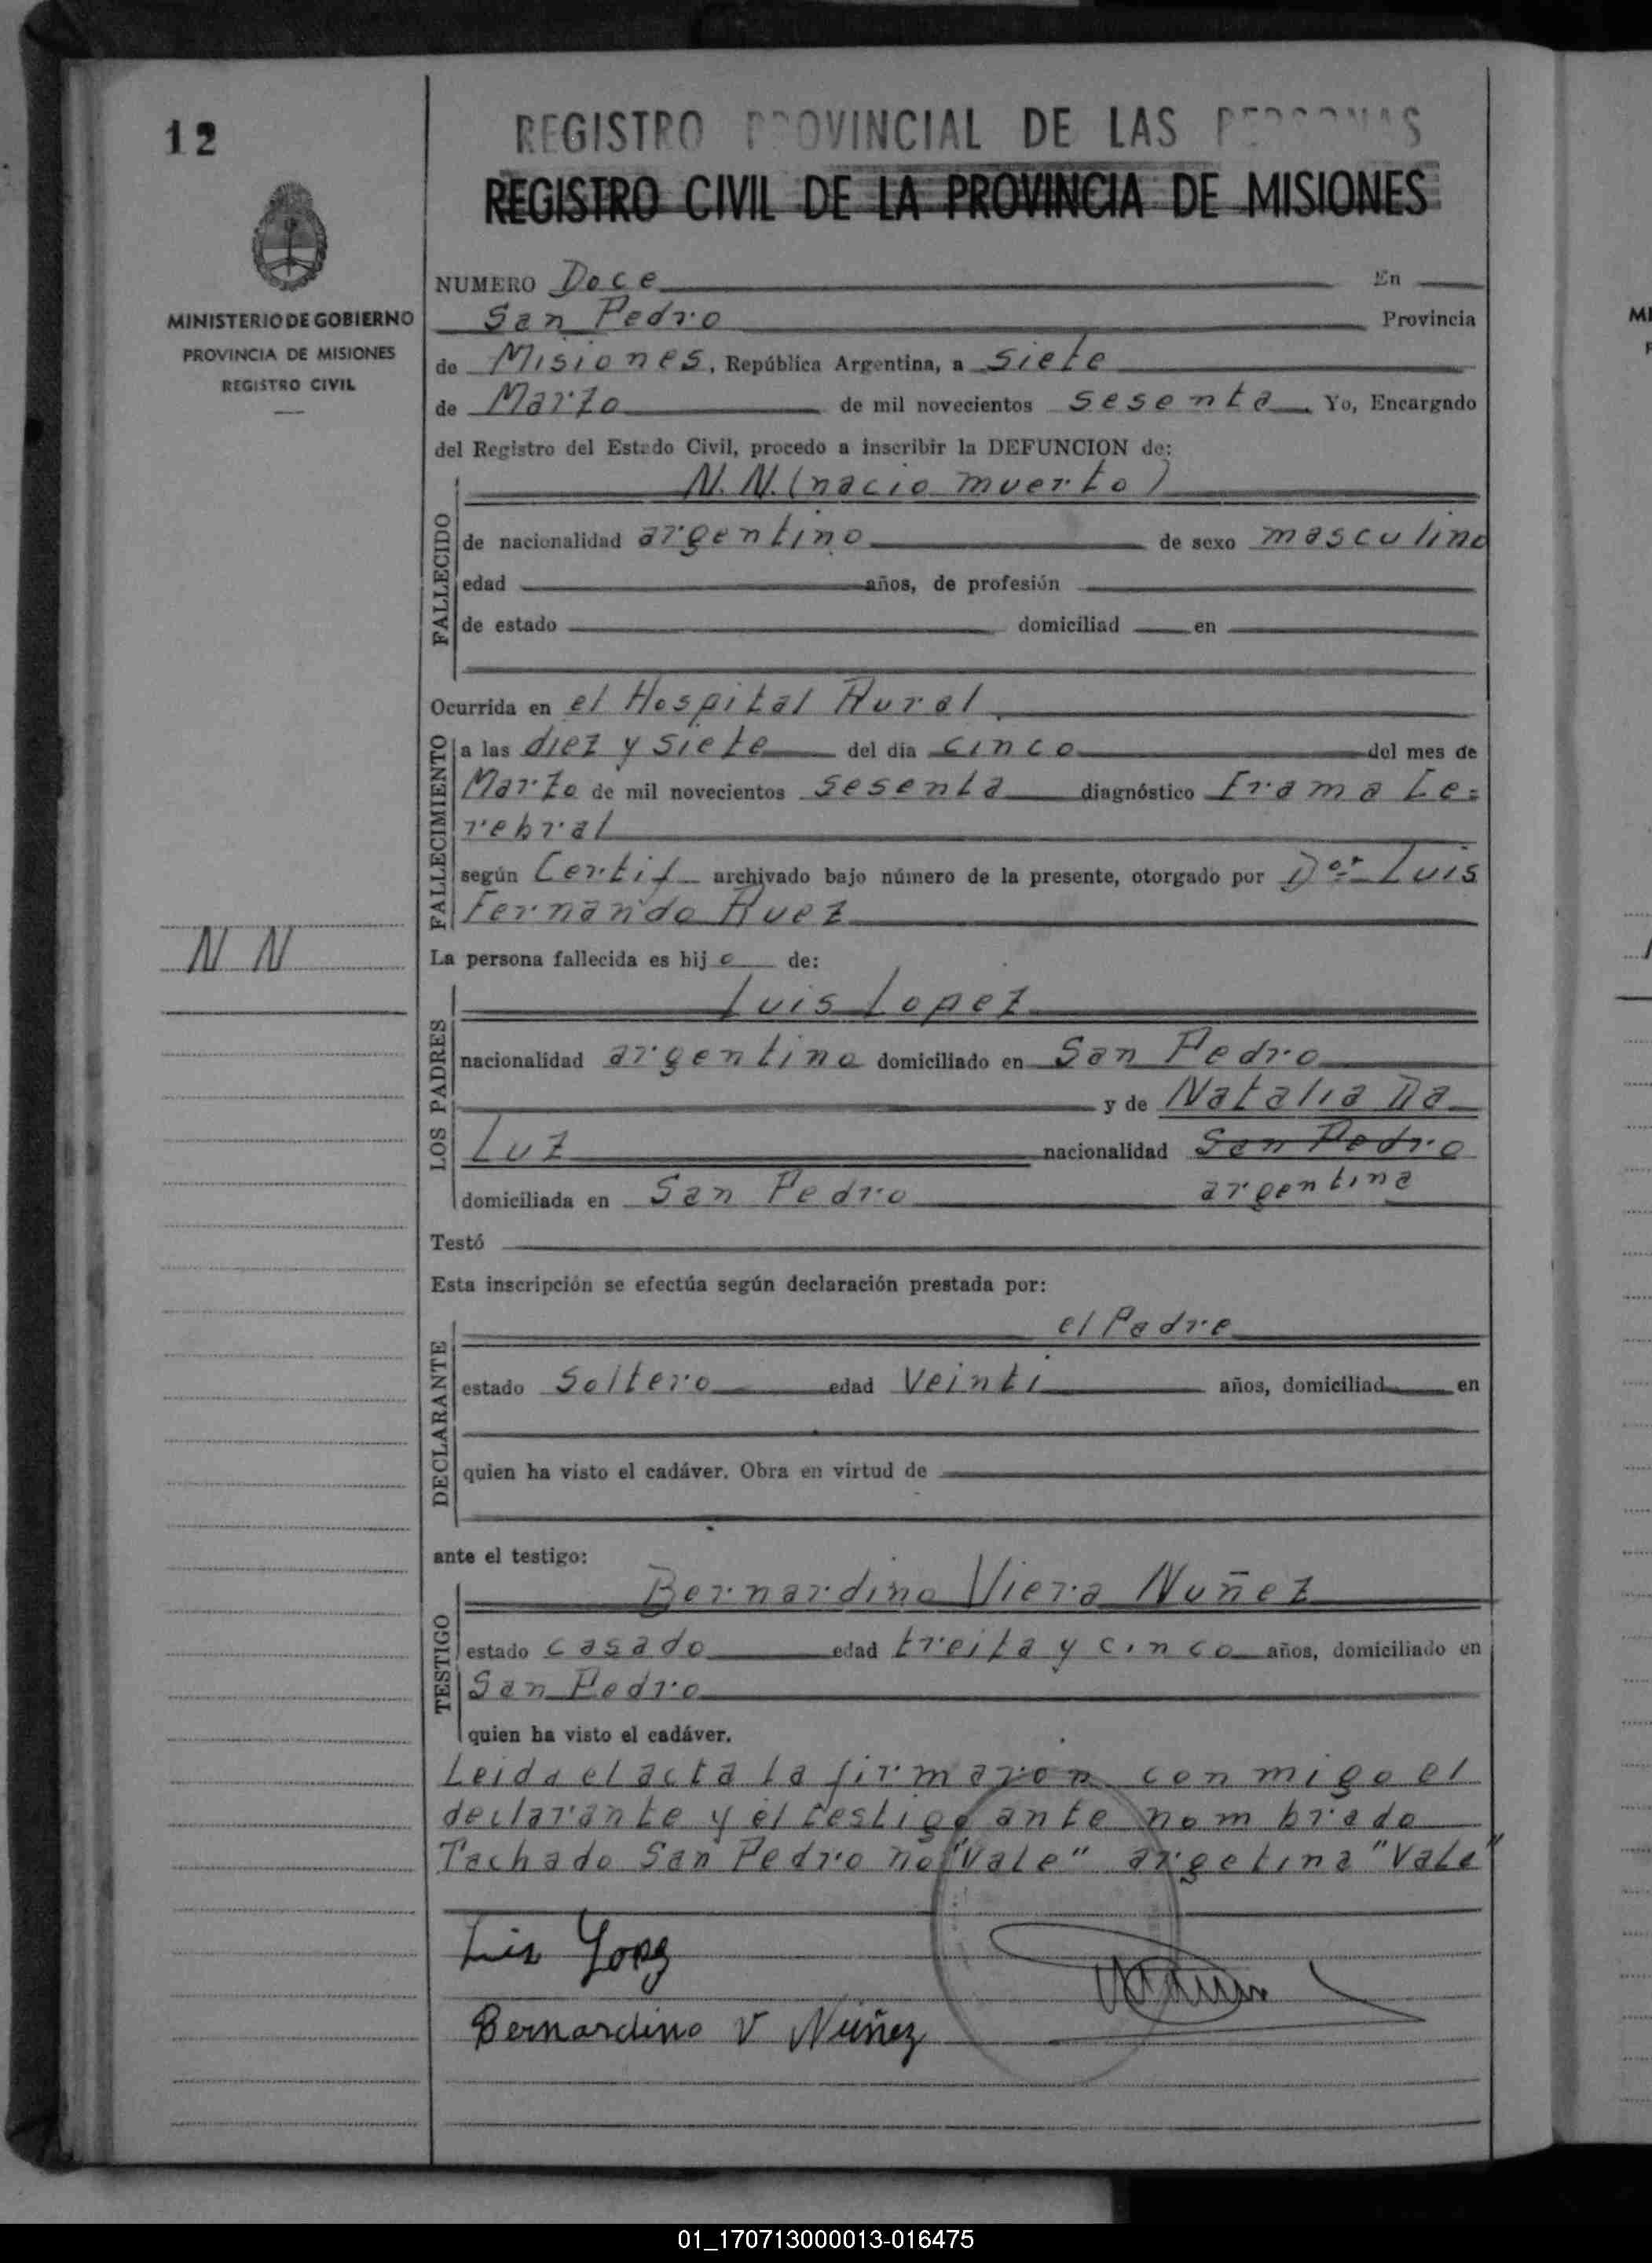 12
REGISTRO PROVINCIAL DE LAS PERSONAS
REGISTRO CIVIL DE LA PROVINCIA DE MISIONES
MINISTERIO DE GOBIERNO
PROVINCIA DE MISIONES
REGISTRO CIVIL
NUMERO Doce En
San Pedro Provincia
de Misiones, República Argentina, a siete
de Marzo de mil novecientos sesenta Yo, Encargado
del Registro del Estado Civil, procedo a inscribir la DEFUNCION de:
N.N. (nacio muerto)
FALLECIDO
de nacionalidad argentino de sexo masculino
edad años, de profesión
de estado domiciliad en
Ocurrida en el Hospital Rural
FALLECIMIENTO
a las diez y siete del día cinco del mes de
Marzo de mil novecientos sesenta diagnóstico
rebral
según Certif archivado bajo número de la presente, otorgado por Dor Luis
Fernando Ruez
N N
La persona fallecida es hijo de:
Luis Lopez
LOS PADRES
nacionalidad argentino domiciliado en San Pedro
y de Natalia Da
Luz nacionalidad San Pedro
domiciliada en San Pedro argentina
Testó
Esta inscripción se efectúa según declaración prestada por:
el Padre
DECLARANTE
estado Soltero edad Veinti años, domiciliad en
quien ha visto el cadáver. Obra en virtud de
ante el testigo:
Bernardino Viera Nuñez
TESTIGO
estado casado edad treita y cinco años, domiciliado en
San Pedro
quien ha visto el cadáver.
Leida el acta la firmaron conmigo el
declarante y el testigo ante nombrado
Tachado San Pedro no "Vale" argetina "Vale"
Luis Lopez
Bernardino V Núñez
01_170713000013-016475